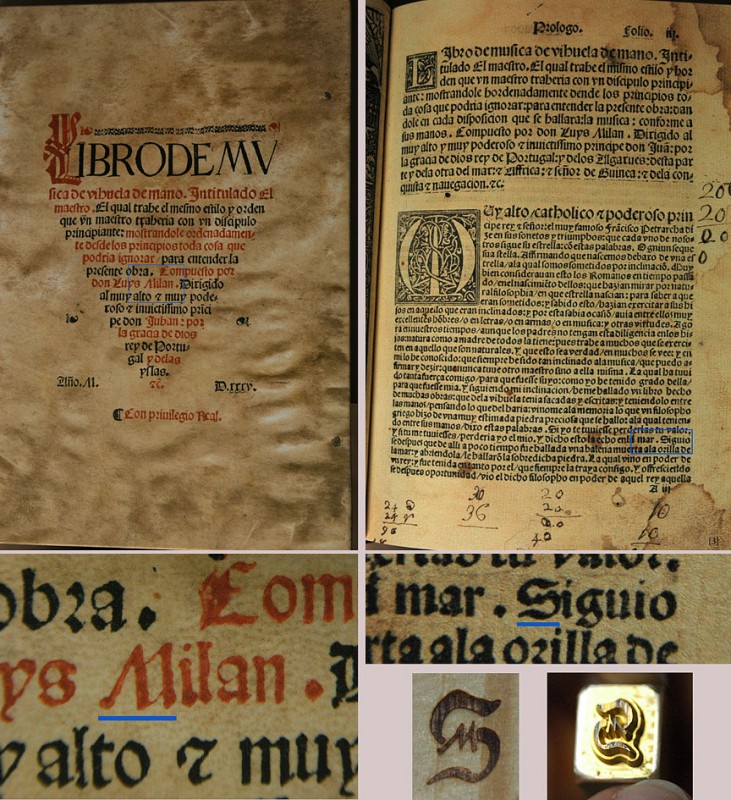 LIBRO DE MU
sica de vihuela de mano. Intitulado El
maestro. El qual trahe el mesmo estilo y orden
que vn maestro traheria con vn discipulo
principiante: mostrandole ordenadamen-
te desde los principios toda cosa que
podria ignorar / para entender la
presente obra. Compuesto por
don Luys Milan. Dirigido
al muy alto ⁊ muy pode-
roso ⁊ inuictissimo prīci
pe don Juhan: por
la gracia de dios
rey de Portu-
gal y delas
yslas.
⁊c.
Año. M. D.xxxv.
Con priuilegio Real.
Prologo. Folio. iij.
Libro de musica de vihuela de mano. Inti-
tulado El maestro. El qual trahe el mismo estilo y hor
den que vn maestro traheria con vn discipulo principi-
ante: mostrandole hordenadamente dende los principios to-
da cosa que podria ignorar: para entender la presente obra: dan
dole en cada disposicion que se hallara: la musica: conforme a
sus manos. Compuesto por don Luys Milan. Dirigido al
muy alto y muy poderoso ⁊ inuictissimo principe don Juā: por
la gracia de dios rey de Portugal: y delos Algarues: desta par
te y dela otra del mar: ⁊ Affrica: ⁊ señor de Guinea: ⁊ dela con-
quista ⁊ nauegacion. ⁊c.
Muy alto / catholico ⁊ poderoso prin
cipe rey ⁊ señor: el muy famoso Frācisco Petrarcha di
ze en sus sonetos y triumphos: que cada vno de noso-
tros sigue su estrella: cō estas palabras. Ogniun segue
sua stella. Affirmando que nascemos debaxo de vna es
trella / ala qual somos sometidos por inclinacio. Muy
bien consideraua esto los Romanos en tiempo passa
do / enel nascimiēto dellos: que hazian mirar por natu-
ral filosophia / en que estrella nascian: para saber a que
eran sometidos: y sabido esto / hazian exercitar a sus hi
jos en aquello que eran inclinados: y por esta sabia ocasiō / auia entre ellos muy
excellentes hōbres / o en letras / o en armas / o en musica / y otras virtudes. Ago
ra en nuestros tiempos / aunque los padres no tengan esta diligencia en los hi-
jos: natura como a madre de todos la tiene: pues trabe a muchos que se exerci-
ten en aquello que son naturales. Y que esto sea verdad / en muchos se vee: y en
mi lo be conoscido: que siempre be sido tan inclinado ala musica / que puedo a-
firmar y dezir: que nunca tuue otro maestro sino a ella misma. La qual ha tuui
do tanta fuerça comigo / para que fuesse suyo: como yo be tenido grado della /
para que fuesse mia. Y siguiendo mi inclinacion / me be hallado vn libro hecho
de muchas obras: que dela vihuela tenia sacadas y escritas: y teniendolo entre
las manos / pensando lo que del haria: vinome ala memoria lo que vn filosopho
griego hizo de vna muy estimada piedra preciosa que se hallo: ala qual tenien-
do entre sus manos / dixo estas palabras. Si yo te tuuiesse perderias tu valor:
y si tu me tuuiesses / perderia yo el mio. Y dicho esto la echo enel mar. Siguio
se despues que de alli a poco tiempo fue hallada vna balena muerta ala orilla de
la mar: y abriendola / le hallarō la sobredicha piedra. La qual vino en poder de
vn rey: y fue tenida en tanto por el / que siempre la traya consigo. Y offresciendo
se despues oportunidad / vio el dicho filosopho en poder de aquel rey aquella
A iij
20
20
30
36
20
20
40
10
10
[3]
obra. Com
uys Milan. D
y alto ⁊ muy
ertas tu valor.
l mar. Siguio
rta ala orilla de